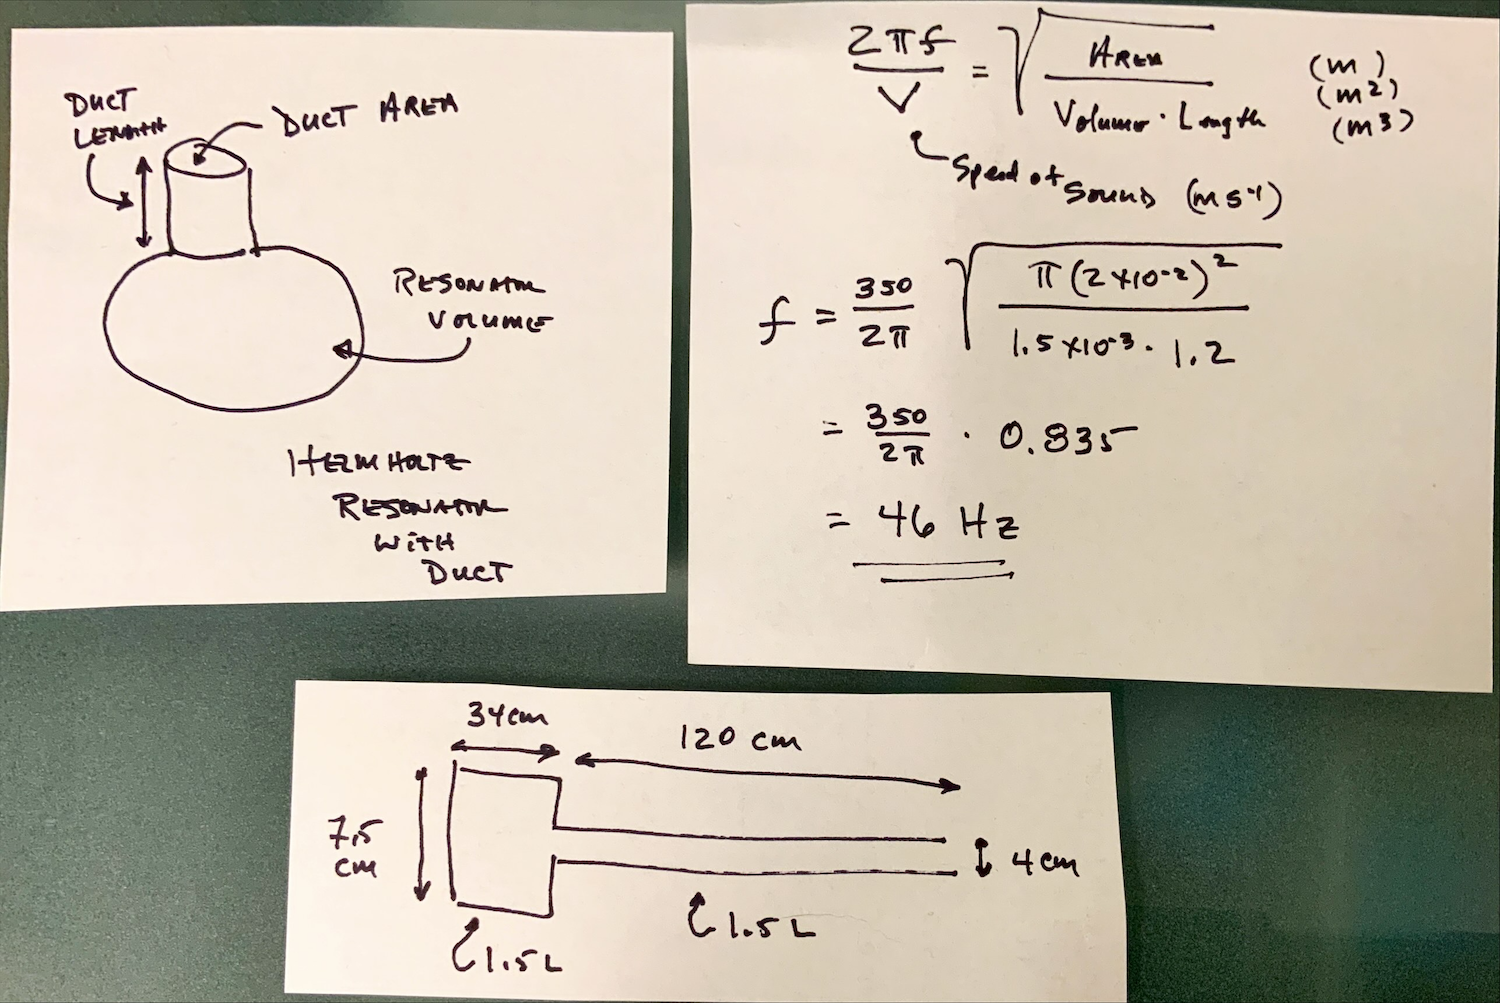 DUCT
LENGTH
DUCT AREA
RESONATOR
VOLUME
HELMHOLTZ
RESONATOR
WITH
DUCT
2πf / V = √ AREA / Volume · Length
(m)
(m2)
(m3)
Speed of Sound (ms-1)
f = 350 / 2π √ π (2x10-2)2 / 1.5x10-3 · 1.2
= 350 / 2π · 0.835
= 46 Hz
34cm
120 cm
7.5
cm
4cm
1.5L
1.5L